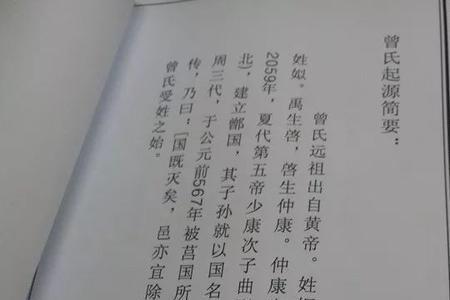 曾氏起源简要：
曾氏远祖出自黄帝。姓
姓姒。禹生啓，啓生仲康。仲康
2059年，夏代第五帝少康次子曲
北)，建立鄫国，其子孙就以国名
周三代，于公元前567年被莒国所
传，乃曰：[国既灭矣，邑亦宜除
曾氏受姓之始。